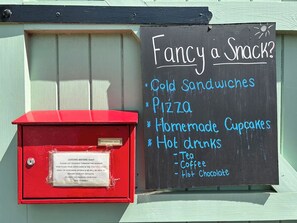 Fancy a Snack?
Cold Sandwiches
Pizza
Homemade Cupcakes
Hot drinks
- Tea
- Coffee
- Hot Chocolate